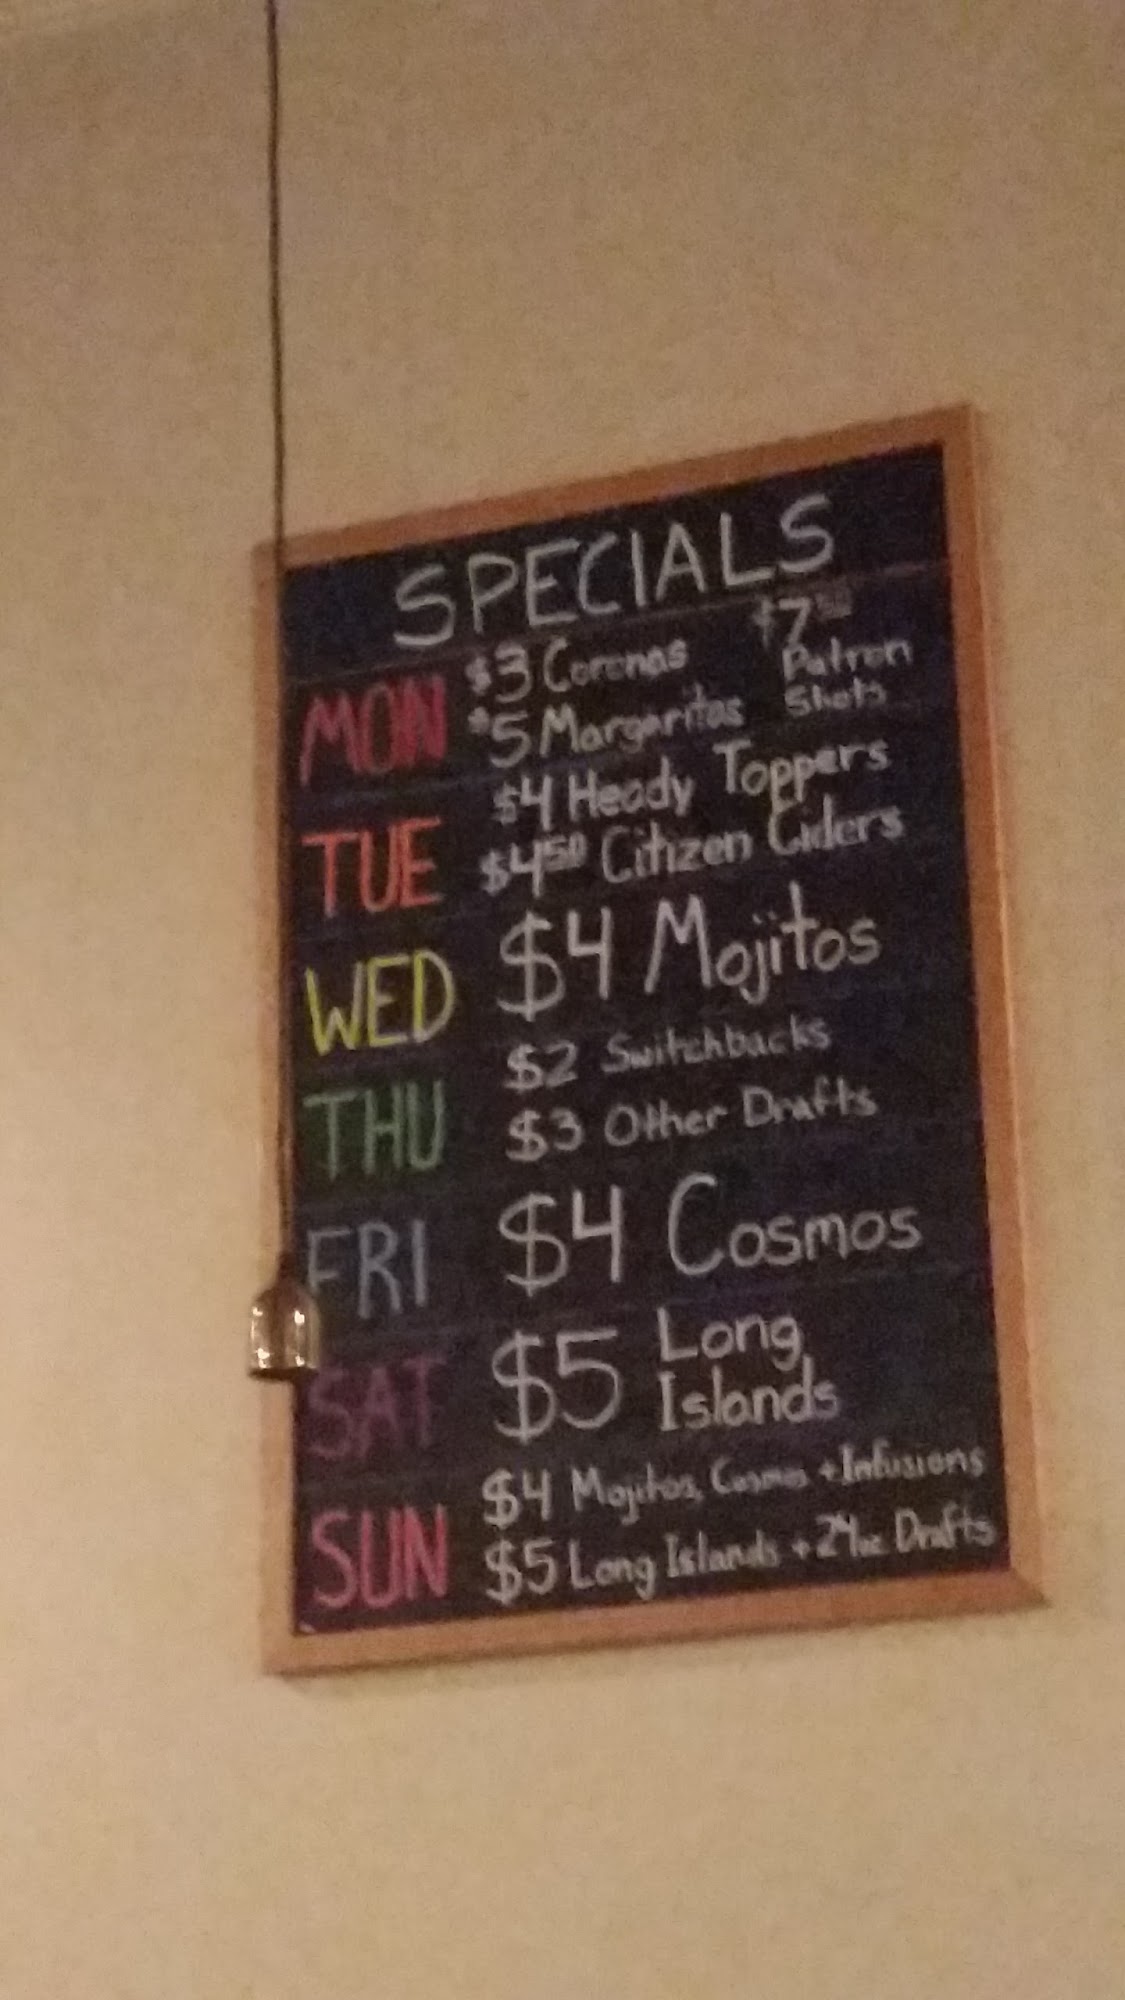 SPECIALS
MON $3 Coronas $7 Patron Shots
$5 Margaritas
TUE $4 Heady Toppers
$4.50 Citizen Ciders
WED $4 Mojitos
THU $2 Switchbacks
$3 Other Drafts
FRI $4 Cosmos
SAT $5 Long Islands
SUN $4 Mojitos, Cosmos + Infusions
$5 Long Islands + 24oz Drafts